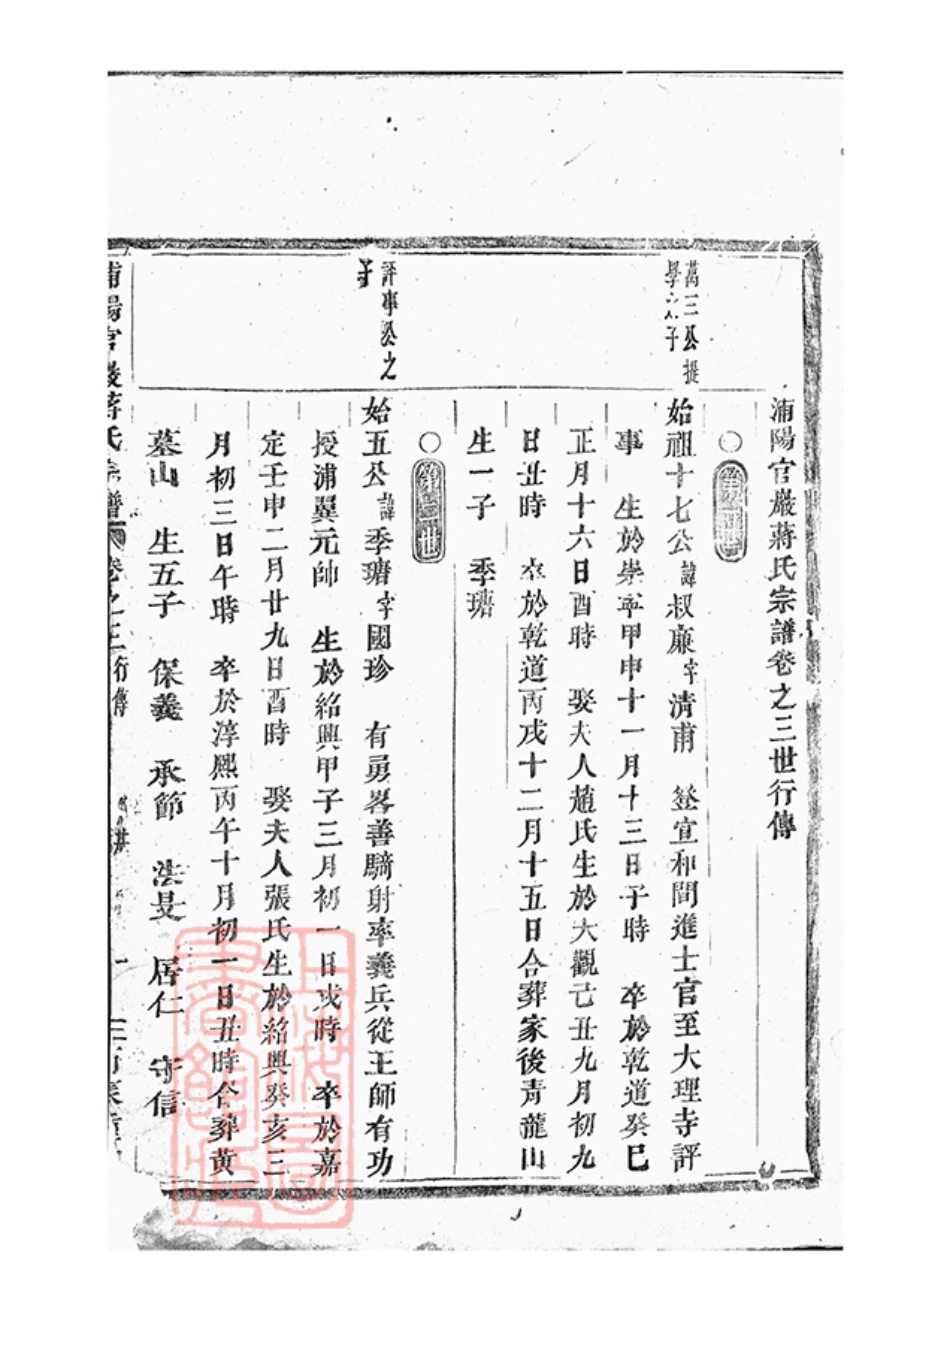 浦陽官巖蔣氏宗譜卷之三世行傳
萬三公提
學公子
始祖十七公諱叔廉字清甫　登宣和間進士官至大理寺評
事　生於崇寧甲申十一月十三日子時　卒於乾道癸巳
正月十六日酉時　娶夫人趙氏生於大觀己丑九月初九
日丑時　卒於乾道丙戌十二月十五日合葬家後青龍山
生一子　季瑭
評事公之
子
〇第二世
始五公諱季瑭字國珍　有勇畧善騎射率義兵從王師有功
授浦翼元帥　生於紹興甲子三月初一日戌時　卒於嘉
定壬申二月廿九日酉時　娶夫人張氏生於紹興癸亥三
月初三日午時　卒於淳熙丙午十月初一日丑時合葬黃
墓山　生五子　保義　承節　法旻　居仁　守信
浦陽官巖蔣氏宗譜　卷之三　行傳